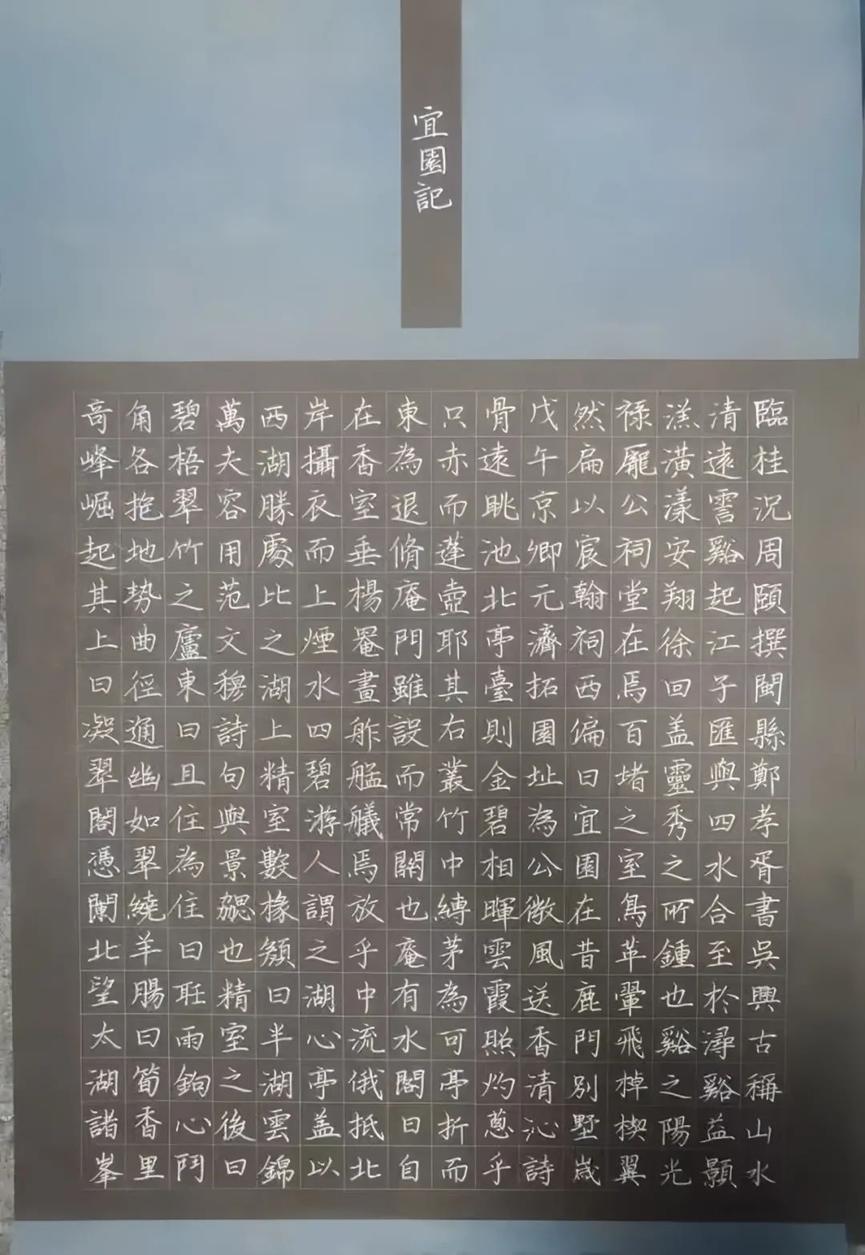 宜園記
臨桂況周頤撰閩縣鄭孝胥書吳興古稱山水
清遠霅谿起江子匯與四水合至於潯谿益顥
溔潢漾安翔徐回盖靈秀之所鍾也谿之陽光
禄龐公祠堂在焉百堵之室鳥革翬飛棹楔翼
然扁以宸翰祠西偏曰宜園在昔鹿門別墅歲
戊午京卿元濟拓園址為公微風送香清沁詩
骨遠眺池北亭臺則金碧相暉雲霞照灼蔥乎
只赤而蓬壺耶其右叢竹中縛茅為可亭折而
東為退脩庵門雖設而常關也庵有水閣曰自
在香室垂楊罨畫舴艋艤焉放乎中流俄抵北
岸攝衣而上煙水四碧游人謂之湖心亭盖以
西湖勝處比之湖上精室數椽頟曰半湖雲錦
萬夫容用范文穆詩句與景勰也精室之後曰
碧梧翠竹之廬東曰且住為住曰聽雨鉤心鬥
角各抱地勢曲徑通幽如翠繞羊腸曰筍香里
奇峰崛起其上曰凝翠閣憑闌北望太湖諸峯